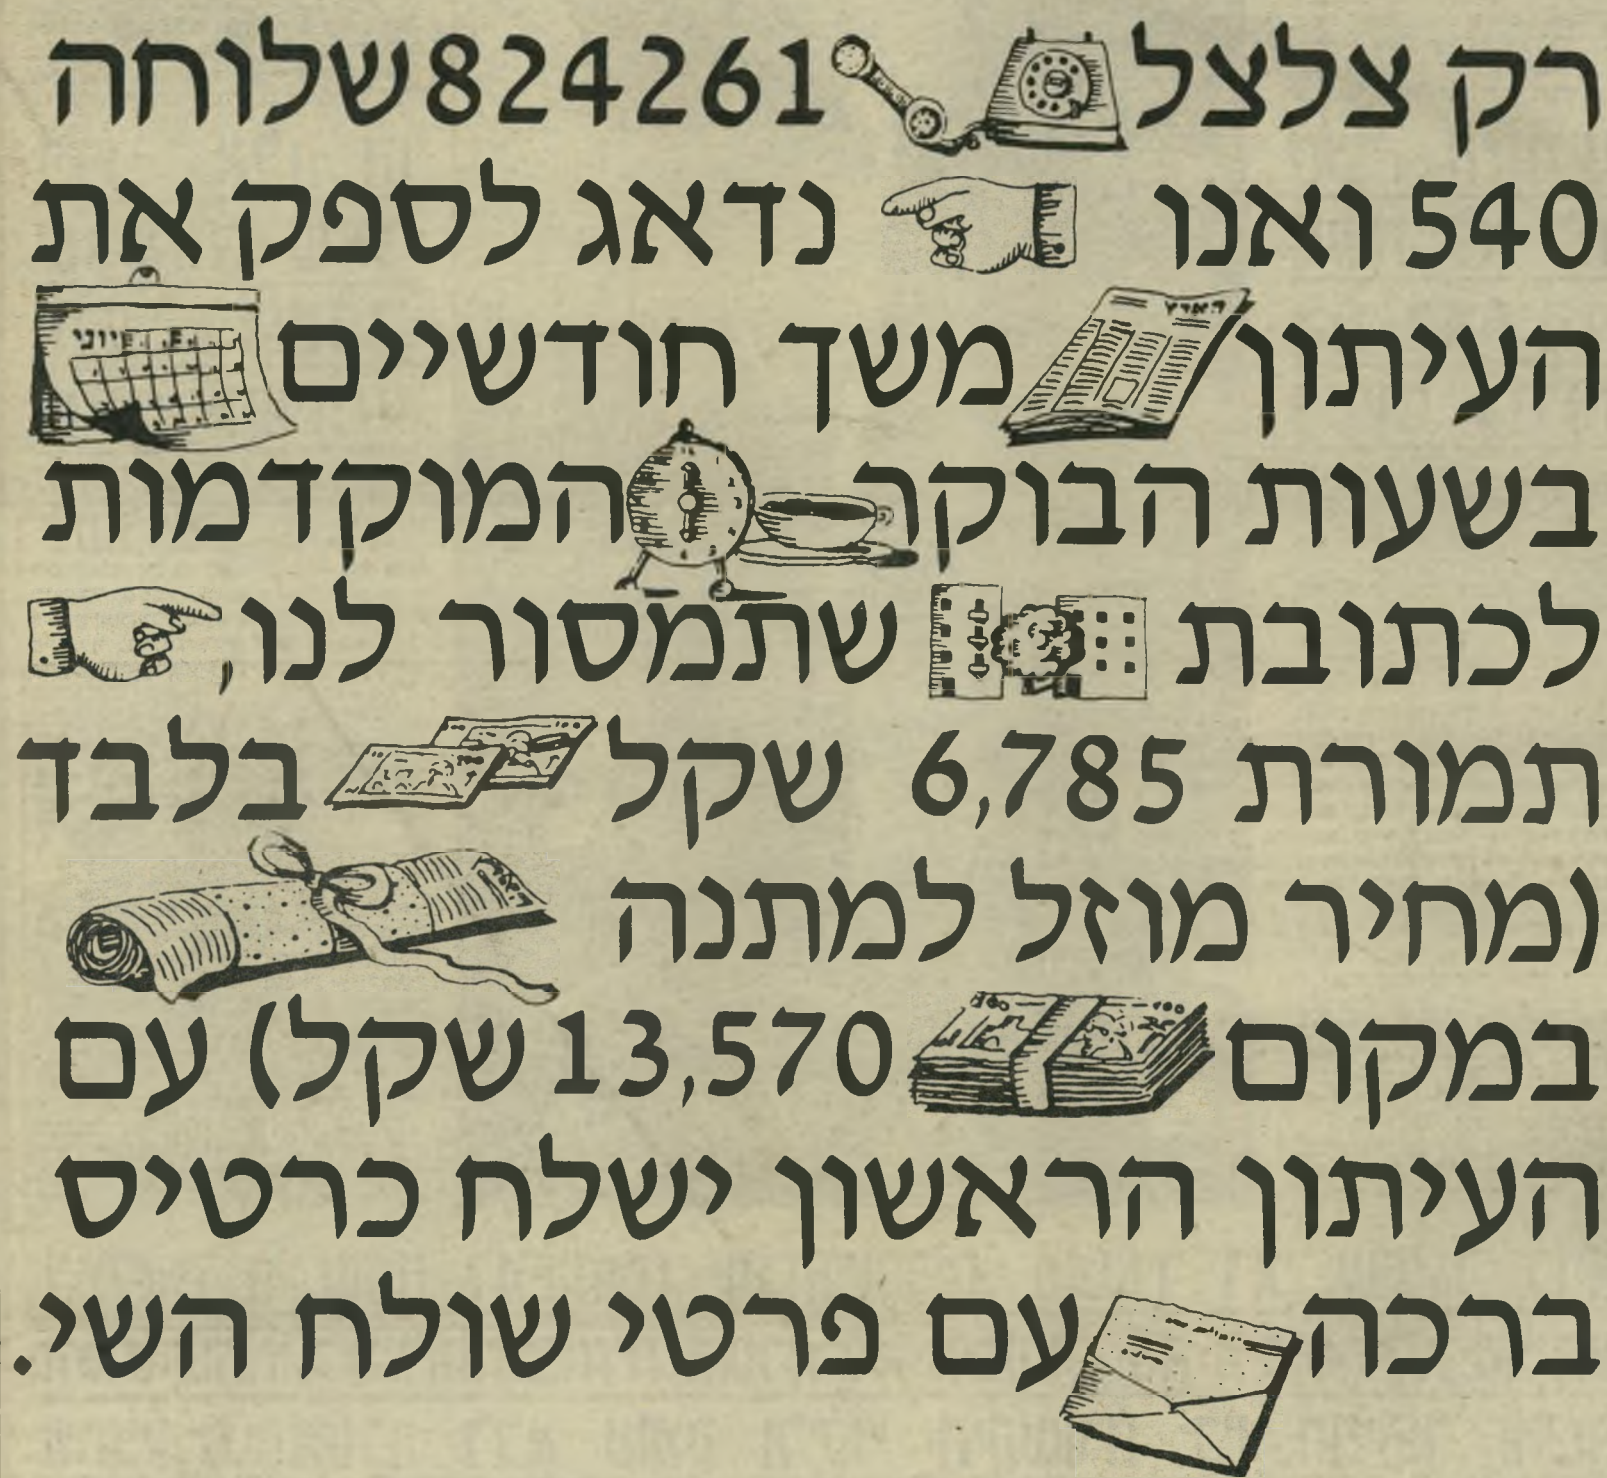 רק צלצל 824261 שלוחה
540 ואנו נדאג לספק את
העיתון הארץ משך חודשיים יוני
בשעות הבוקר המוקדמות
לכתובת שתמסור לנו,
תמורת 6,785 שקל בלבד
(מחיר מוזל למתנה
במקום 13,570 שקל) עם
העיתון הראשון ישלח כרטיס
ברכה עם פרטי שולח השי.